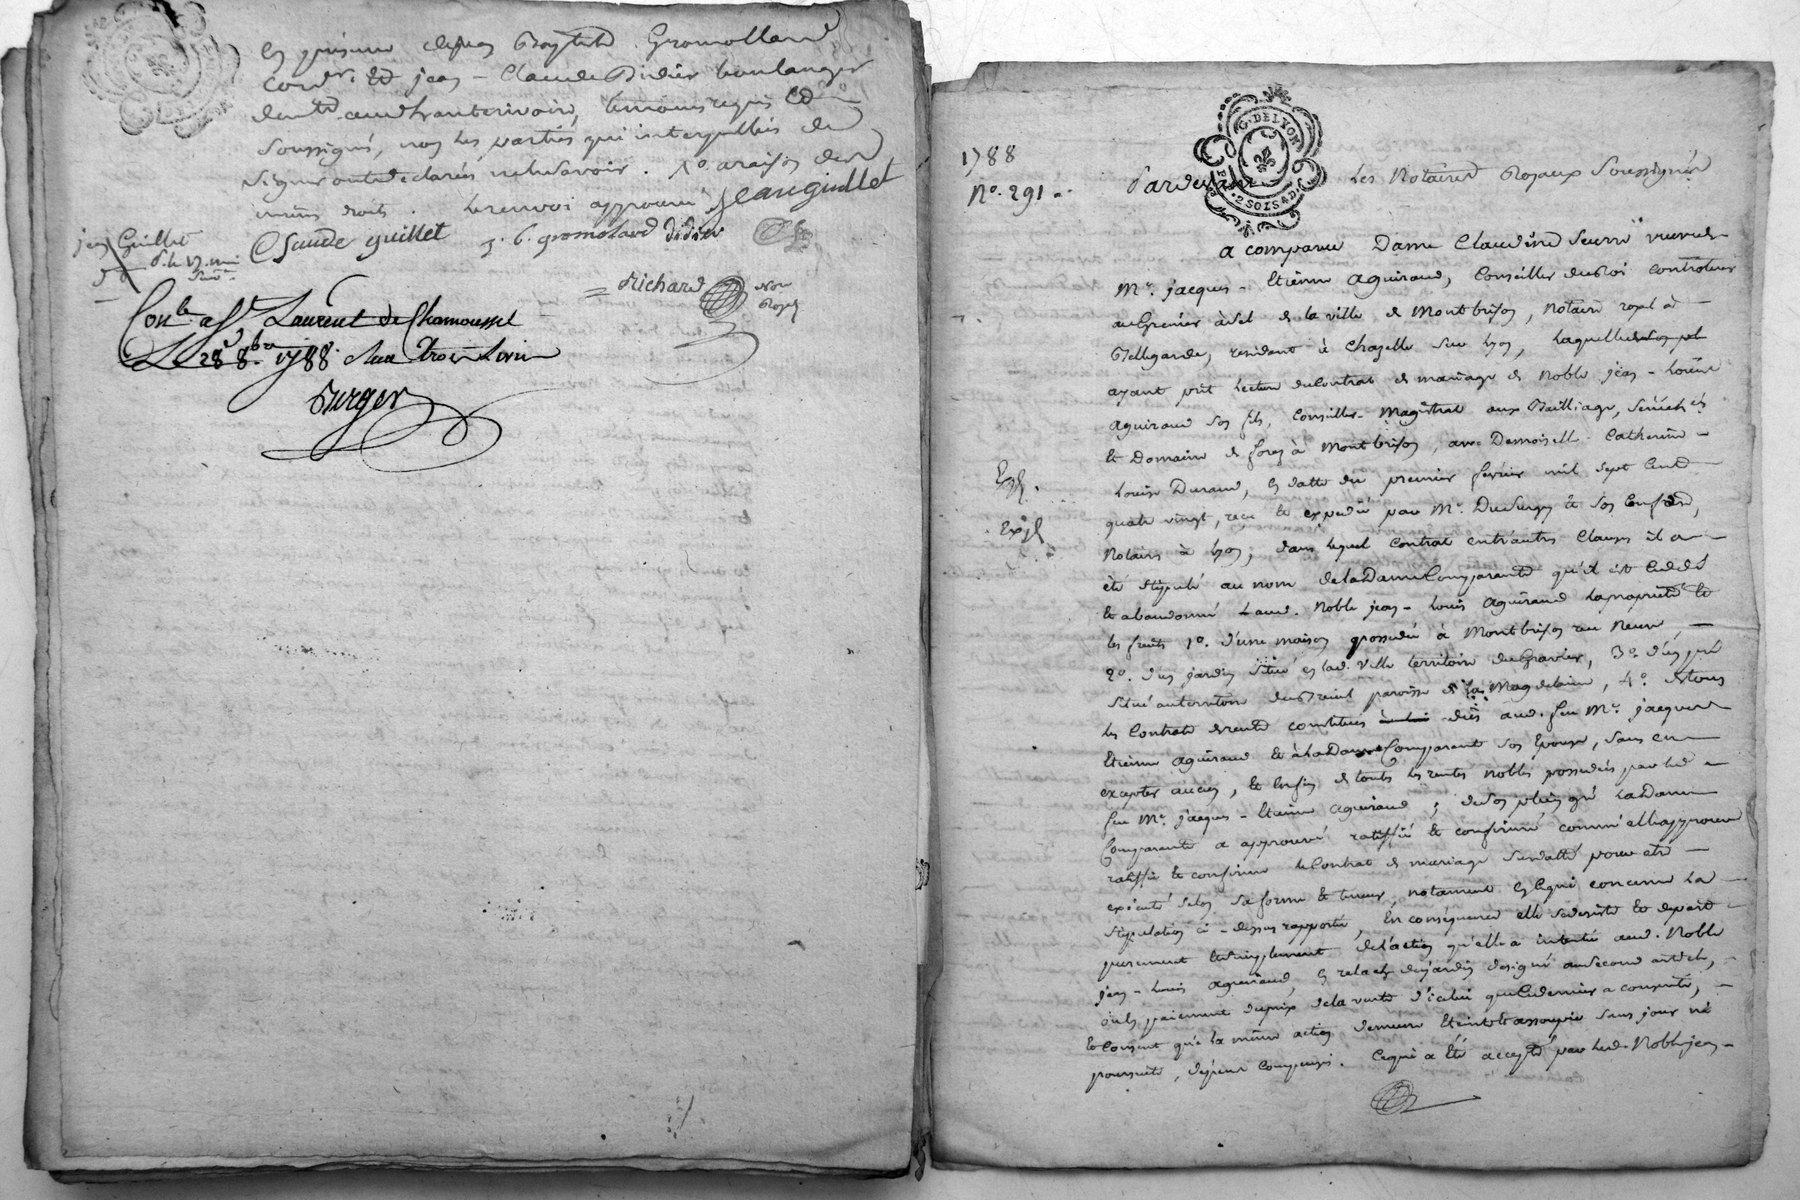 en présence de Jean Baptiste Gromollard
cordr. et jean - Claude Didier boulanger
demt. aud. haut rivoire, temoins requis et
soussignés, non les parties qui interpellées de
signer ont declarés ne le savoir. 1° a raison de
mêmes droits. le renvoi approuvé jean guillet
Claude guillet j. b. gromolard didier
jean Guillet
Richard Nore
Royal
Conlé a St. Laurent de Chamousset
Le 28 8bre 1788. Reçu trois Livres
Burger
1788
N°. 291.
G. DE LYON
2 SOLS 4 D.
Pardevant les Notaires Royaux Soussignés
a comparu Dame Claudine veuve de
Mr. jacques - Etienne aguiraud, Conseiller du Roi controleur
au Grenier à Sel de la ville de Montbrison, notaire royal à
Bellegarde, residant à Chazelle sur Lyon, laquelle
ayant prit lecture du Contrat de mariage de Noble jean - Louis
aguiraud son fils, Conseiller - Magistrat aux Bailliage, Sénéch ée
et Domaine de forez à Montbrison, avec Demoiselle Catherine -
Louise Durand, en datte du premier fevrier mil sept Cent
quatre vingt, reçu et expedié par Mr. Dusurgey et son Confrere,
Expé.
Expé
Notaires à Lyon, dans lequel contrat entr'autres Clauses il a
été stipulé au nom de la Dame Comparante qu'il est Cedé
et abandonné aud. Noble jean - Louis aguiraud la proprieté et
les fruits 1°. d'une maison possedée à Montbrison rue Neuve,
2°. d'un jardin situé en lad. Ville territoire du Gravier, 3°. d'un pré
situé au territoire du paroisse de la Magdelaine, 4°. de tous
les Contrats de rente constitués dûs aud. feu Mr. jacques
Etienne aguiraud et à la Dame Comparante son Epouse, sans en
excepter aucun, et Enfin de toutes les rentes nobles possedées par led.
feu Mr. jacques - Etienne aguiraud; de son plein gré la Dame
Comparante a approuvé ratiffié et confirmé comm'elle approuve
ratiffie et confirme le Contrat de mariage susdatté pour etre
exécuté selon sa forme et teneur, notament en Ce qui concerne la
stipulation ci - dessus rapportée, En conséquence elle se desiste et depart
purement et simplement de l'action qu'elle a intenté aud. Noble
jean - Louis aguiraud, en relache du jardin designé au second article,
ou en paiement du prix de la vente d'icelui que Ce dernier a consentie,
et Consent que la même action demeure Eteinte et assoupie sans jour né
poursuite, depens compensés. Ce qui a Eté accepté par led. Noble jean -